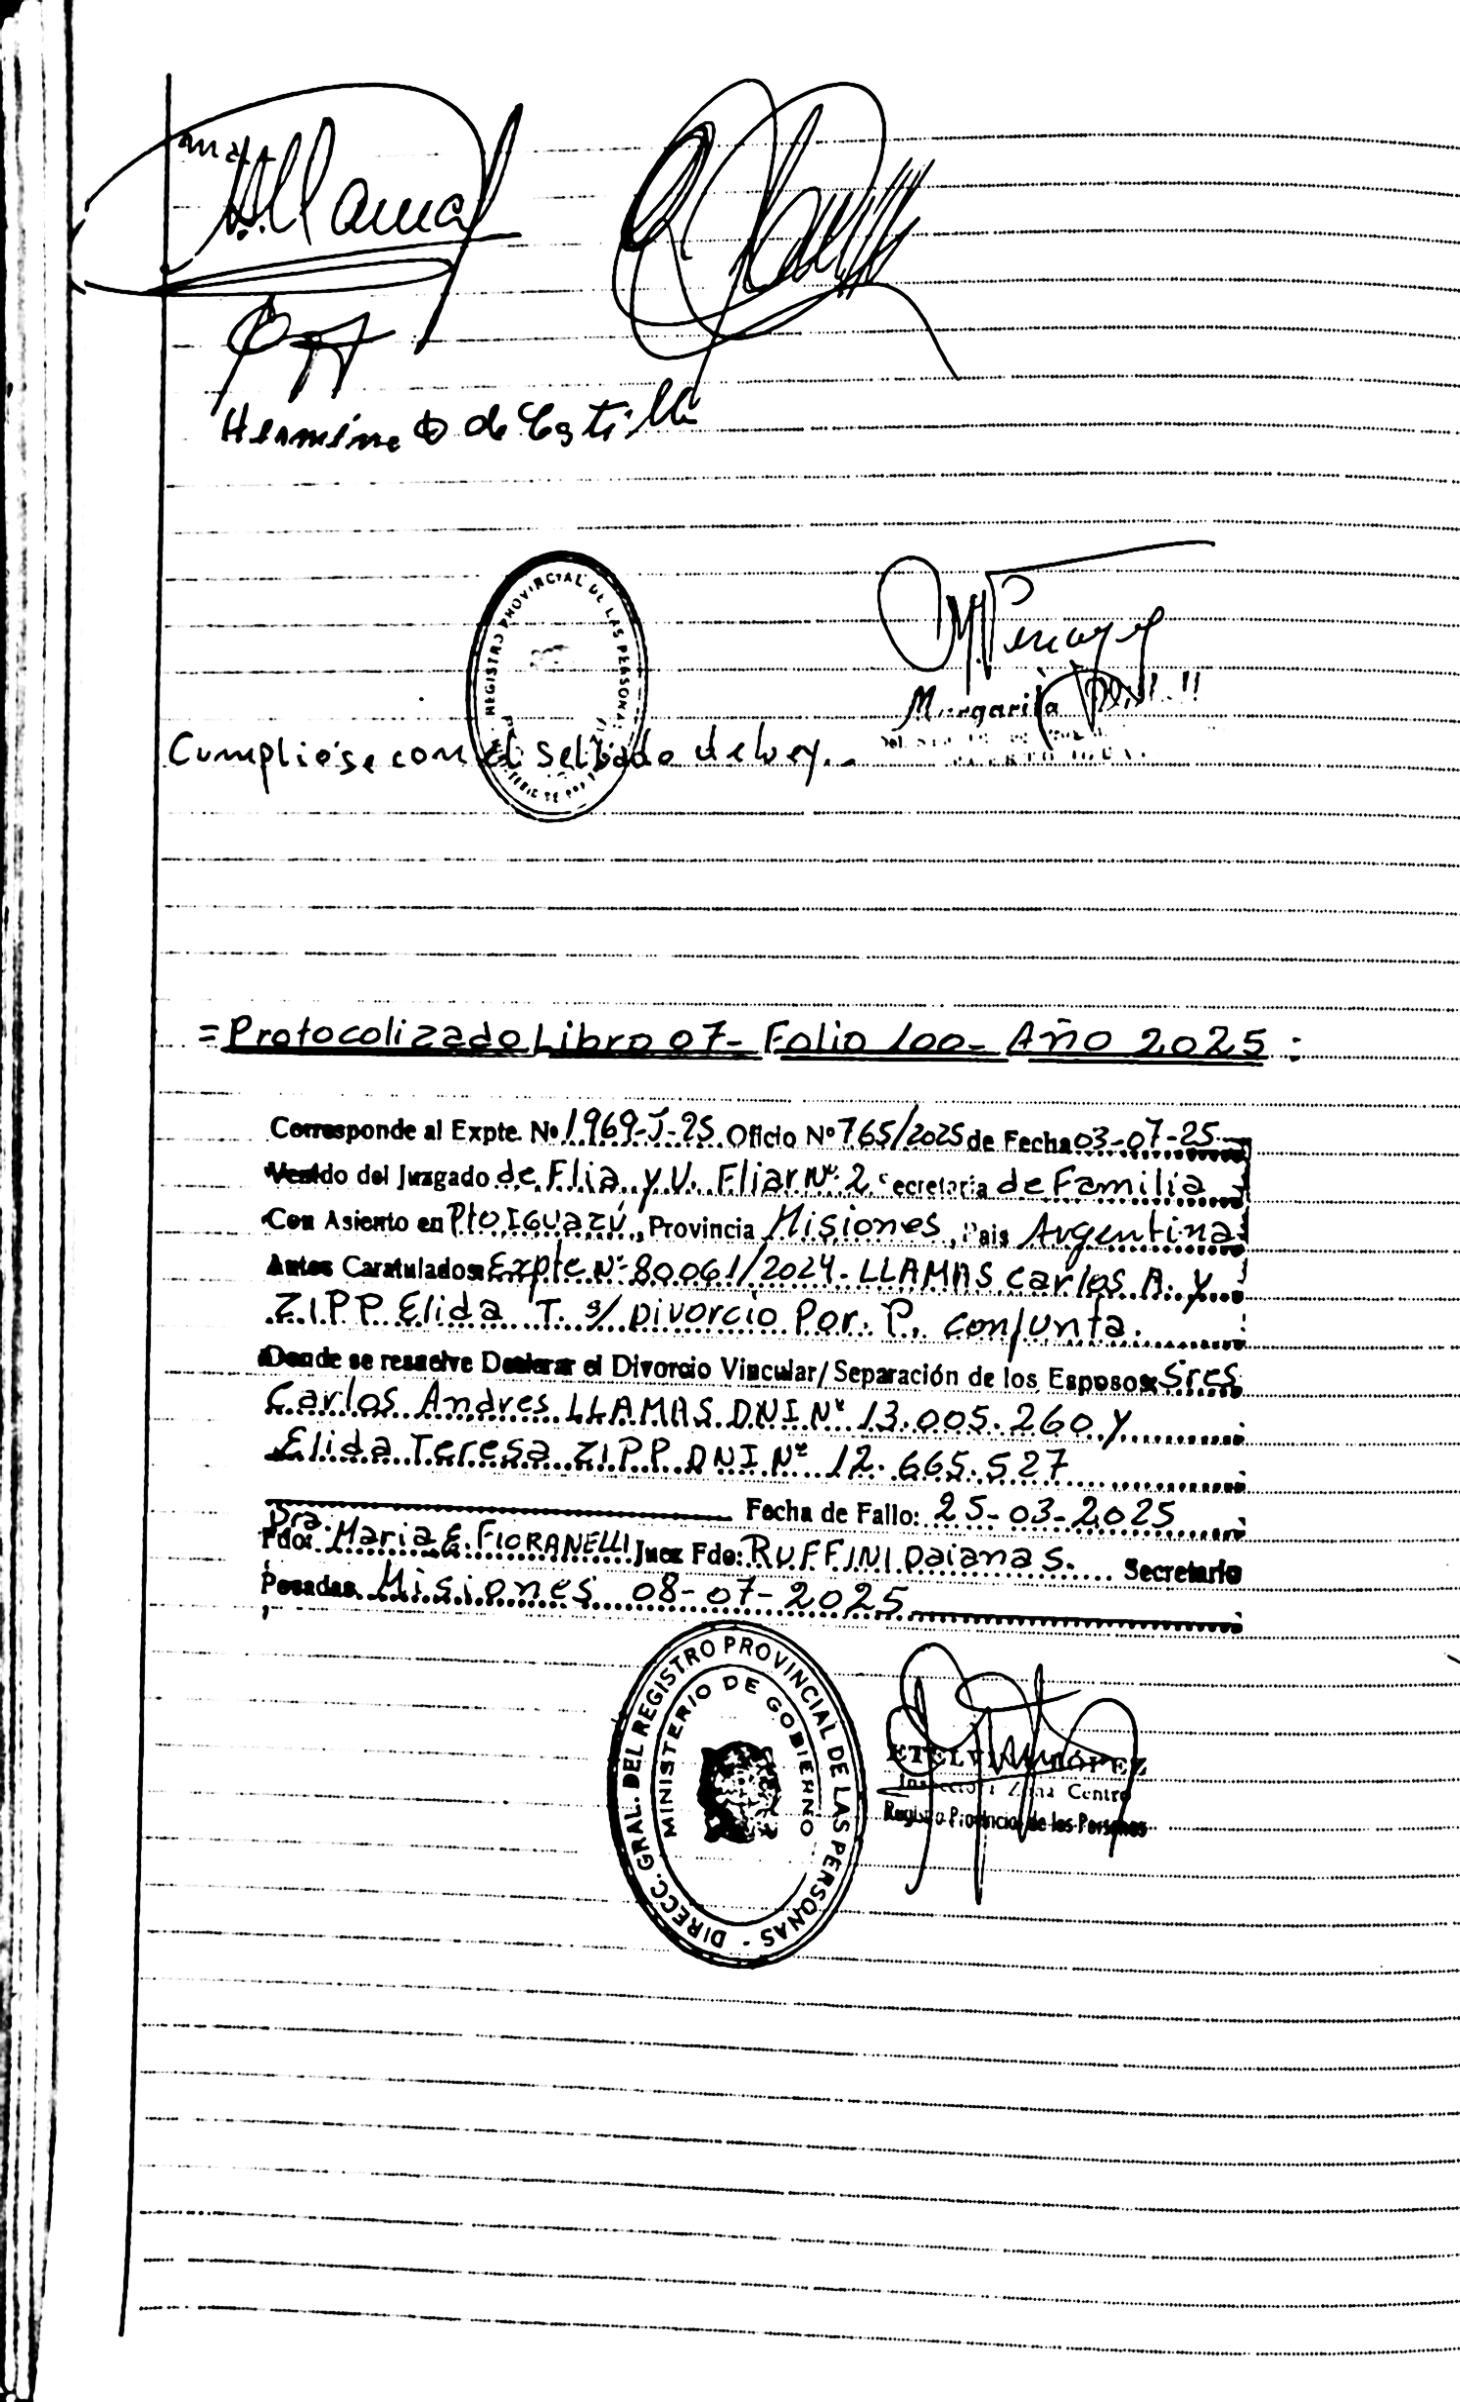 Hermine O de Castillo
REGISTRO PROVINCIAL DE LAS PERSONAS
Margarita
Cumpliose con el sellado de ley.-
=Protocolizado Libro 07- Folio 100- Año 2025:
Corresponde al Expte. Nº 1969-J-25 Oficio Nº 765/2025 de Fecha 03-07-25
Venido del Juzgado de Flia. y V. Fliar Nº 2 Secretaria de Familia
Con Asiento en Pto Iguazú, Provincia Misiones, Pais Argentina
Autos Caratulados: Expte Nº 80061/2024- LLAMAS Carlos A. y
ZIPP Elida T. s/ Divorcio Por. P. conjunta.
Donde se resuelve Declarar el Divorcio Vincular/Separación de los Esposos: Sres
Carlos Andres LLAMAS DNI Nº 13.005.260 y
Elida Teresa ZIPP DNI Nº 12.665.527
Fecha de Fallo: 25-03-2025
Fdo: Dra. Maria E. FIORANELLI Juez Fdo: RUFFINI Daiana S. Secretario
Posadas Misiones 08-07-2025
DIRECC. GRAL. DEL REGISTRO PROVINCIAL DE LAS PERSONAS -
MINISTERIO DE GOBIERNO
LOPEZ
Zona Centro
Registro Provincial de las Personas